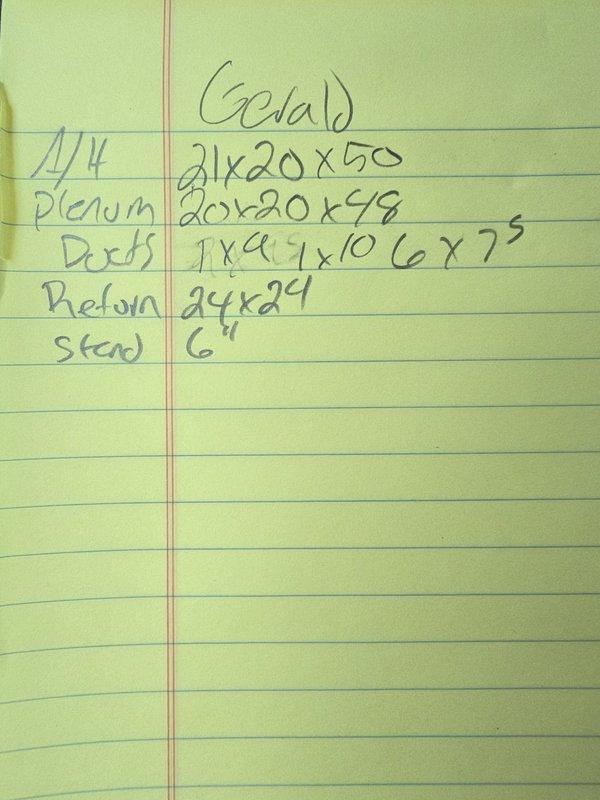 Gerald
A/H 21x20x50
Plenum 20x20x48
Ducts 1x9 1x10 6x7s
Return 24x24
Stand 6"